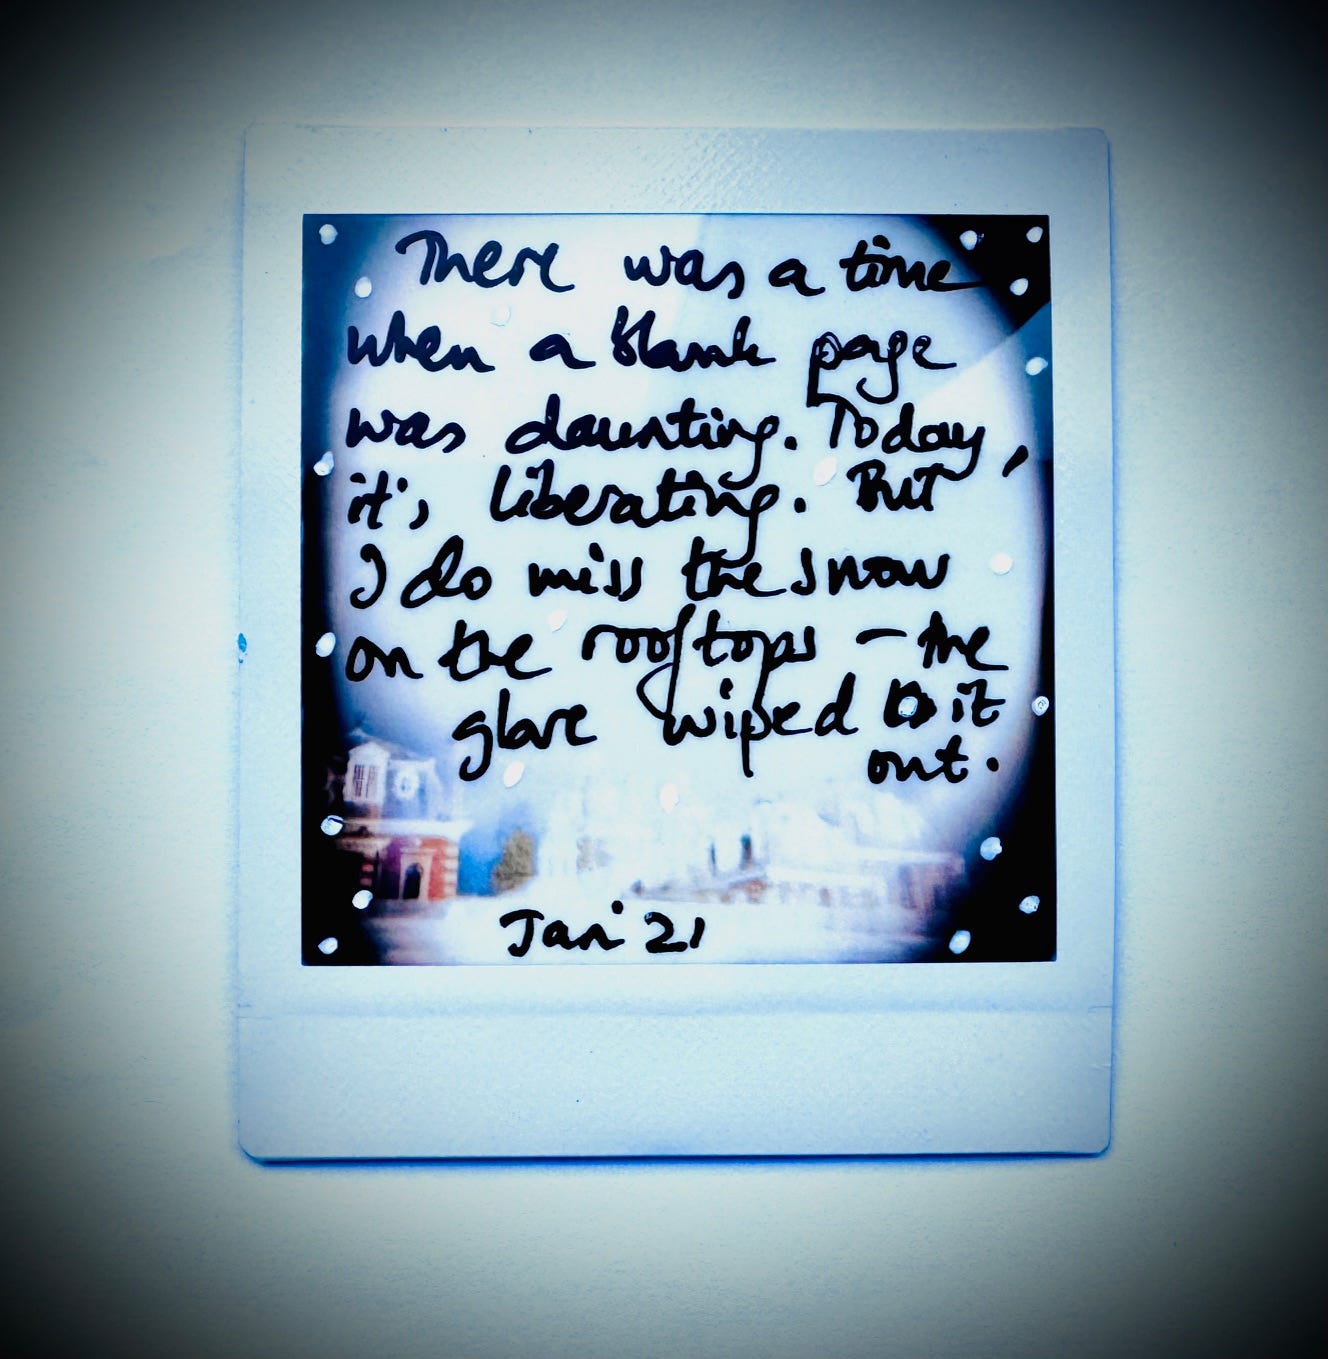 There was a time
when a blank page
was daunting. Today,
it's liberating. But
I do miss the snow
on the rooftops – the
glare wiped it
out.
Jan '21